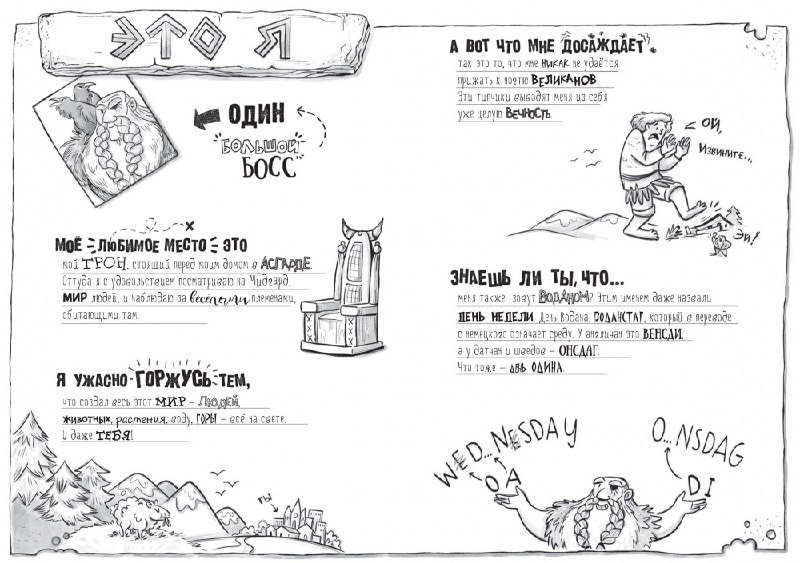 ЭТО Я
ОДИН
БОЛЬШОЙ
БОСС
МОЁ ЛЮБИМОЕ МЕСТО ЭТО
мой ТРОН, стоящий перед моим домом в АСГАРДЕ.
Оттуда я с удовольствием посматриваю на Мидгард,
МИР людей, и наблюдаю за весёлыми племенами,
обитающими там.
Я УЖАСНО ГОРЖУСЬ ТЕМ,
что создал весь этот МИР – ЛЮДЕЙ,
животных, растения, воду, ГОРЫ – всё на свете.
И даже ТЕБЯ!
ТЫ
А ВОТ ЧТО МНЕ ДОСАЖДАЕТ,
так это то, что мне НИКАК не удаётся
прижать к ногтю ВЕЛИКАНОВ.
Эти типчики выводят меня из себя
уже целую ВЕЧНОСТЬ.
ОЙ,
ИЗВИНИТЕ...
ЭЙ!
ЗНАЕШЬ ЛИ ТЫ, ЧТО...
меня также зовут ВОДАНОМ? Этим именем даже назвали
ДЕНЬ НЕДЕЛИ. День Водана, ВОДАНСТАГ, который в переводе
с немецкого означает среду. У англичан это ВЕНСДИ,
а у датчан и шведов – ОНСДАГ.
Что тоже – ДЕНЬ ОДИНА.
WED...NESDAY
O...NSDAG
O A
DI